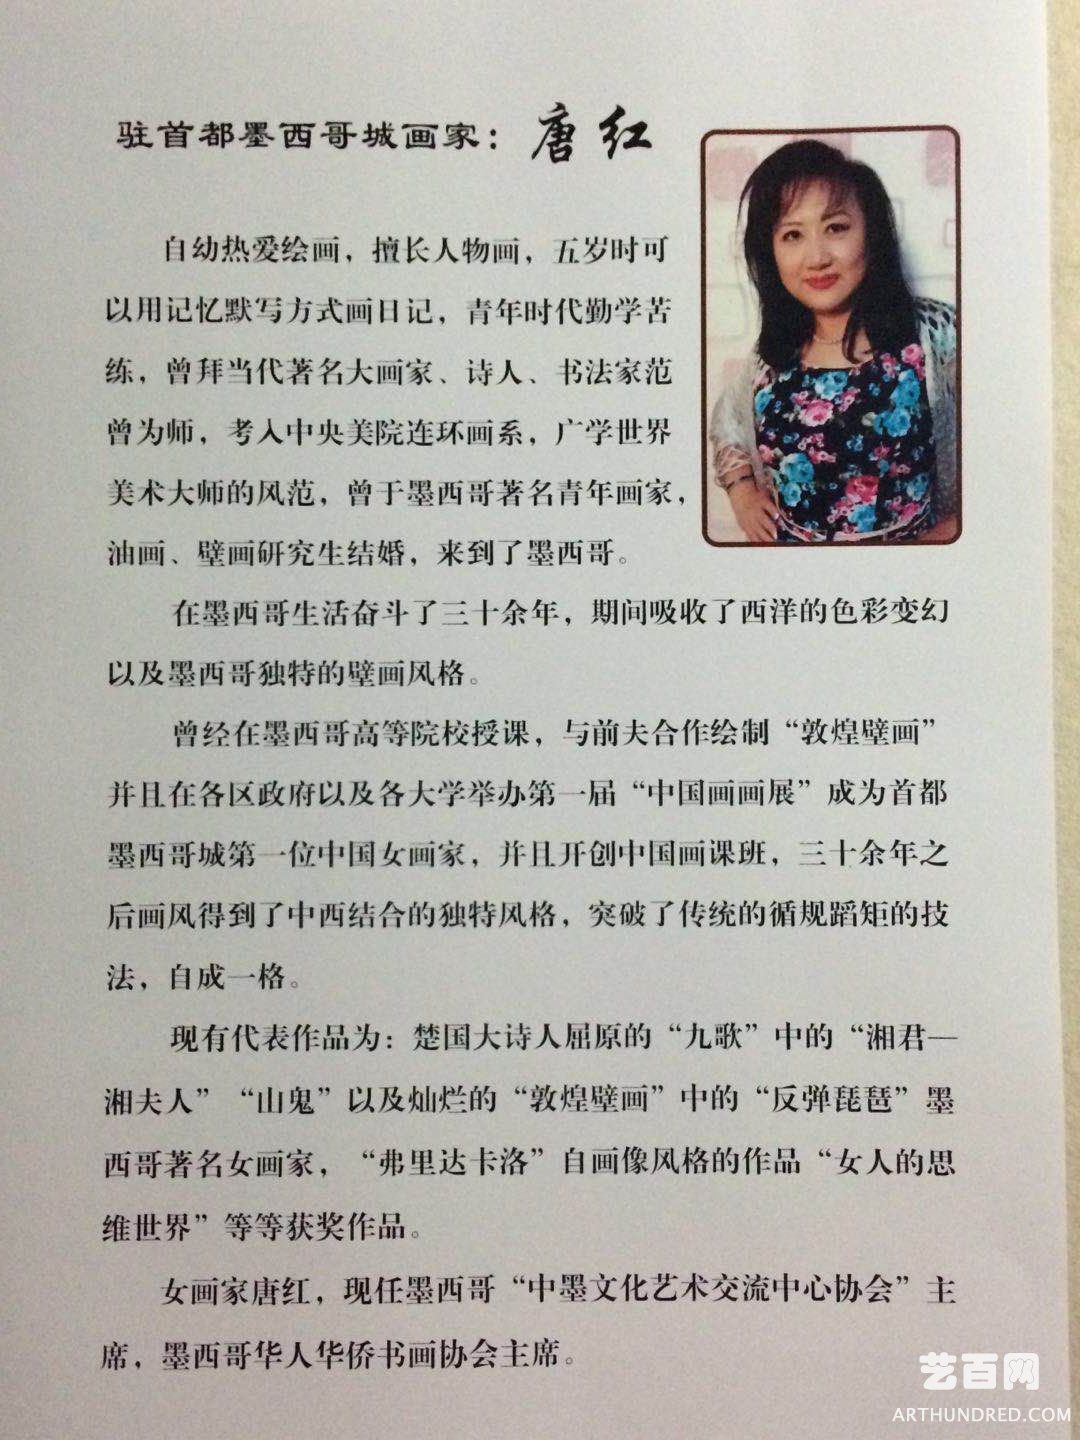 驻首都墨西哥城画家：唐红
自幼热爱绘画，擅长人物画，五岁时可
以用记忆默写方式画日记，青年时代勤学苦
练，曾拜当代著名大画家、诗人、书法家范
曾为师，考入中央美院连环画系，广学世界
美术大师的风范，曾于墨西哥著名青年画家，
油画、壁画研究生结婚，来到了墨西哥。
在墨西哥生活奋斗了三十余年，期间吸收了西洋的色彩变幻
以及墨西哥独特的壁画风格。
曾经在墨西哥高等院校授课，与前夫合作绘制“敦煌壁画”
并且在各区政府以及各大学举办第一届“中国画画展”成为首都
墨西哥城第一位中国女画家，并且开创中国画课班，三十余年之
后画风得到了中西结合的独特风格，突破了传统的循规蹈矩的技
法，自成一格。
现有代表作品为：楚国大诗人屈原的“九歌”中的“湘君—
湘夫人”“山鬼”以及灿烂的“敦煌壁画”中的“反弹琵琶”墨
西哥著名女画家，“弗里达卡洛”自画像风格的作品“女人的思
维世界”等等获奖作品。
女画家唐红，现任墨西哥“中墨文化艺术交流中心协会”主
席，墨西哥华人华侨书画协会主席。
艺百网
ARTHUNDRED.COM